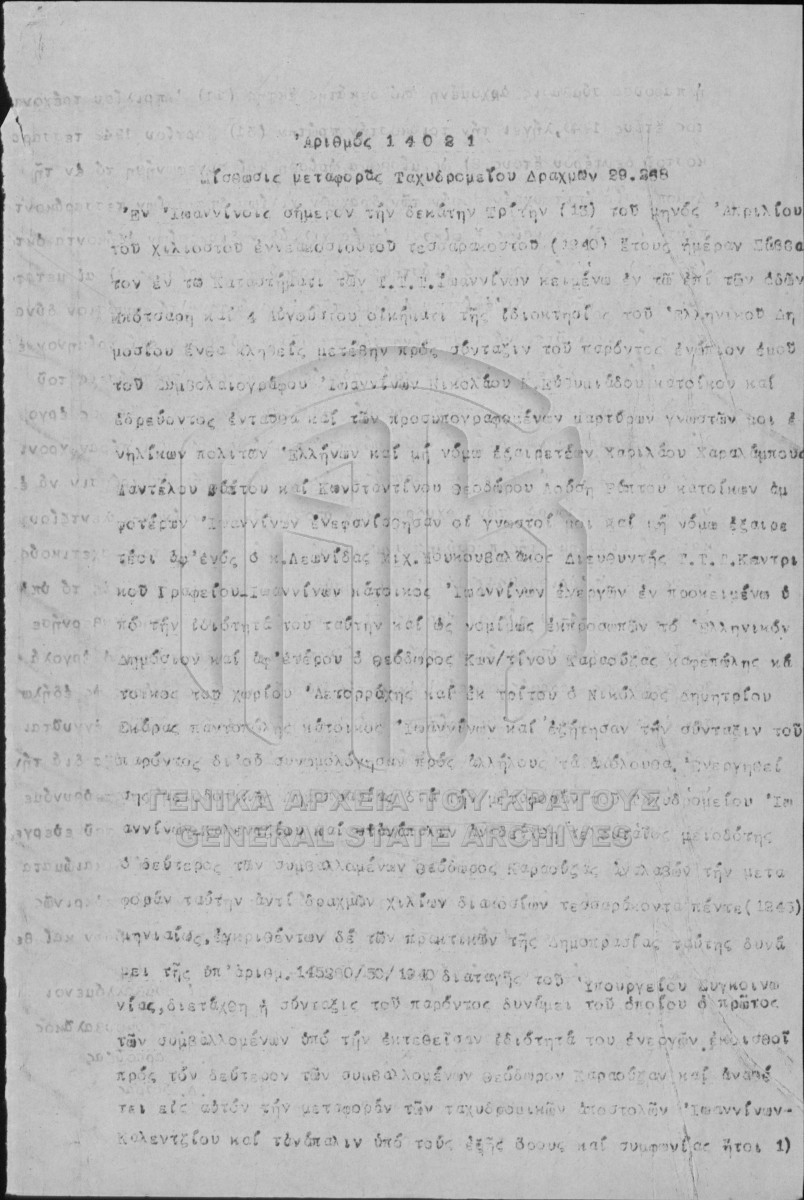 Ἀριθμός 14021
Μίσθωσις μεταφορᾶς Ταχυδρομείου Δραχμῶν 29.268
Ἐν Ἰωαννίνοις σήμερον τήν δεκάτην Τρίτην (13) τοῦ μηνός Ἀπριλίου
τοῦ χιλιοστοῦ ἐννεακοσιοστοῦ τεσσαρακοστοῦ (1940) ἔτους ἡμέραν Σάββα
τον ἐν τῶ Καταστήματι τῶν Τ.Τ.Τ.Ἰωαννίνων κειμένω ἐν τῶ ἐπί τῶν ὁδῶν
Μπότσαρη καί 4 Αὐγούστου οἰκήματι τῆς ἰδιοκτησίας τοῦ Ἑλληνικοῦ Δη
μοσίου ἔνθα κληθείς μετέβην πρός σύνταξιν τοῦ παρόντος ἐνώπιον ἐμοῦ
τοῦ Συμβολαιογράφου Ἰωαννίνων Νικολάου Εὐθυμιάδου κατοίκου καί
ἑδρεύοντος ἐνταῦθα καί τῶν προσυπογραφομένων μαρτύρων γνωστῶν μοι ἐ
νηλίκων πολιτῶν Ἑλλήνων καί μή νόμω ἐξαιρετέων Χαριλάου Χαραλάμπους
Παντέλου καί Κωνσταντίνου Θεοδώρου Λούση Ράπτου κατοίκων ἀμ
φοτέρων Ἰωαννίνων ἐνεφανίσθησαν οἱ γνωστοί μοι καί μή νόμω ἐξαιρε
τέοι ἀφ'ἑνός ὁ κ.Λεωνίδας Μιχ.Κουκουβαλᾶκος Διευθυντής Τ.Τ.Τ.Κεντρι
κοῦ Γραφείου Ἰωαννίνων κάτοικος Ἰωαννίνων ἐνεργῶν ἐν προκειμένω ὑ
πό τήν ἰδιότητά του ταύτην καί ὡς νομίμως ἐκπροσωπῶν τό Ἑλληνικόν
Δημόσιον καί ἀφ'ἑτέρου ὁ Θεόδωρος Κων/τίνου Καραούζας καφεπώλης κά
τοικος τοῦ χωρίου Ἀετορράχης καί ἐκ τρίτου ὁ Νικόλαος Δημητρίου
Σκόρας παντοπώλης κάτοικος Ἰωαννίνων καί ἐζήτησαν τήν σύνταξιν τοῦ
παρόντος δι'οὗ συνομολόγησαν πρός ἀλλήλους τά ἀκόλουθα. Ἐνεργηθεί
σης διά τήν μεταφοράν τοῦ ταχυδρομείου Ἰω
ΓΕΝΙΚΑ ΑΡΧΕΙΑ ΤΟΥ ΚΡΑΤΟΥΣ
αννίνων Καλεντζίου καί τἀνάπαλιν μειοδότης
GENERAL STATE ARCHIVES
ὁ δεύτερος τῶν συμβαλλομένων Θεόδωρος Καραούζας ἀναλαβών τήν μετα
φοράν ταύτην ἀντί δραχμῶν χιλίων διακοσίων τεσσαράκοντα πέντε(1245)
μηνιαίως,ἐγκριθέντων δέ τῶν πρακτικῶν τῆς Δημοπρασίας ταύτης δυνά
μει τῆς ὑπ'ἀριθμ.145260/50/1940 διαταγῆς τοῦ Ὑπουργείου Συγκοινω
νίας,διετάχθη ἡ σύνταξις τοῦ παρόντος δυνάμει τοῦ ὁποίου ὁ πρῶτος
τῶν συμβαλλομένων ὑπό τήν ἐκτεθεῖσαν ἰδιότητά του ἐνεργῶν ἐκμισθοῖ
πρός τόν δεύτερον τῶν συμβαλλομένων Θεόδωρον Καραούζαν καί ἀναθέ
τει εἰς αὐτόν τήν μεταφοράν τῶν ταχυδρομικῶν ἀποστολῶν Ἰωαννίνων-
Καλεντζίου καί τἀνάπαλιν ὑπό τούς ἑξῆς ὅρους καί συμφωνίας ἤτοι 1)